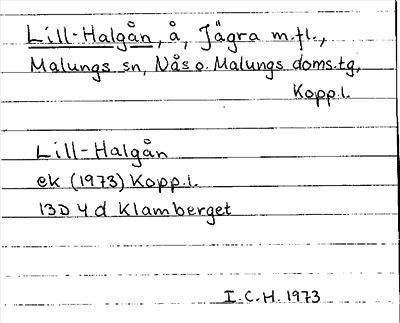 Lill-Halgån, å, Jägra m.fl.,
Malungs sn, Nås o. Malungs doms.tg,
Kopp.l.
Lill-Halgån
ek (1973) Kopp.l.
13D 4d Klamberget
I.C.H. 1973